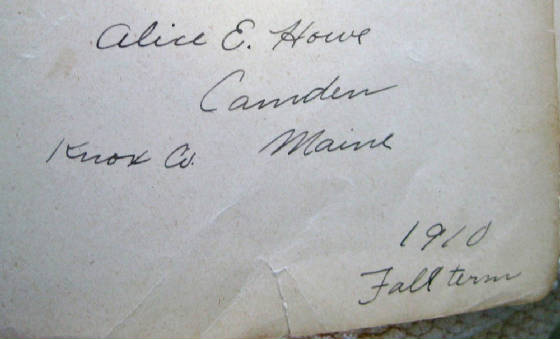 Alice E. Howe
Camden
Knox Co. Maine
1910
Fall term